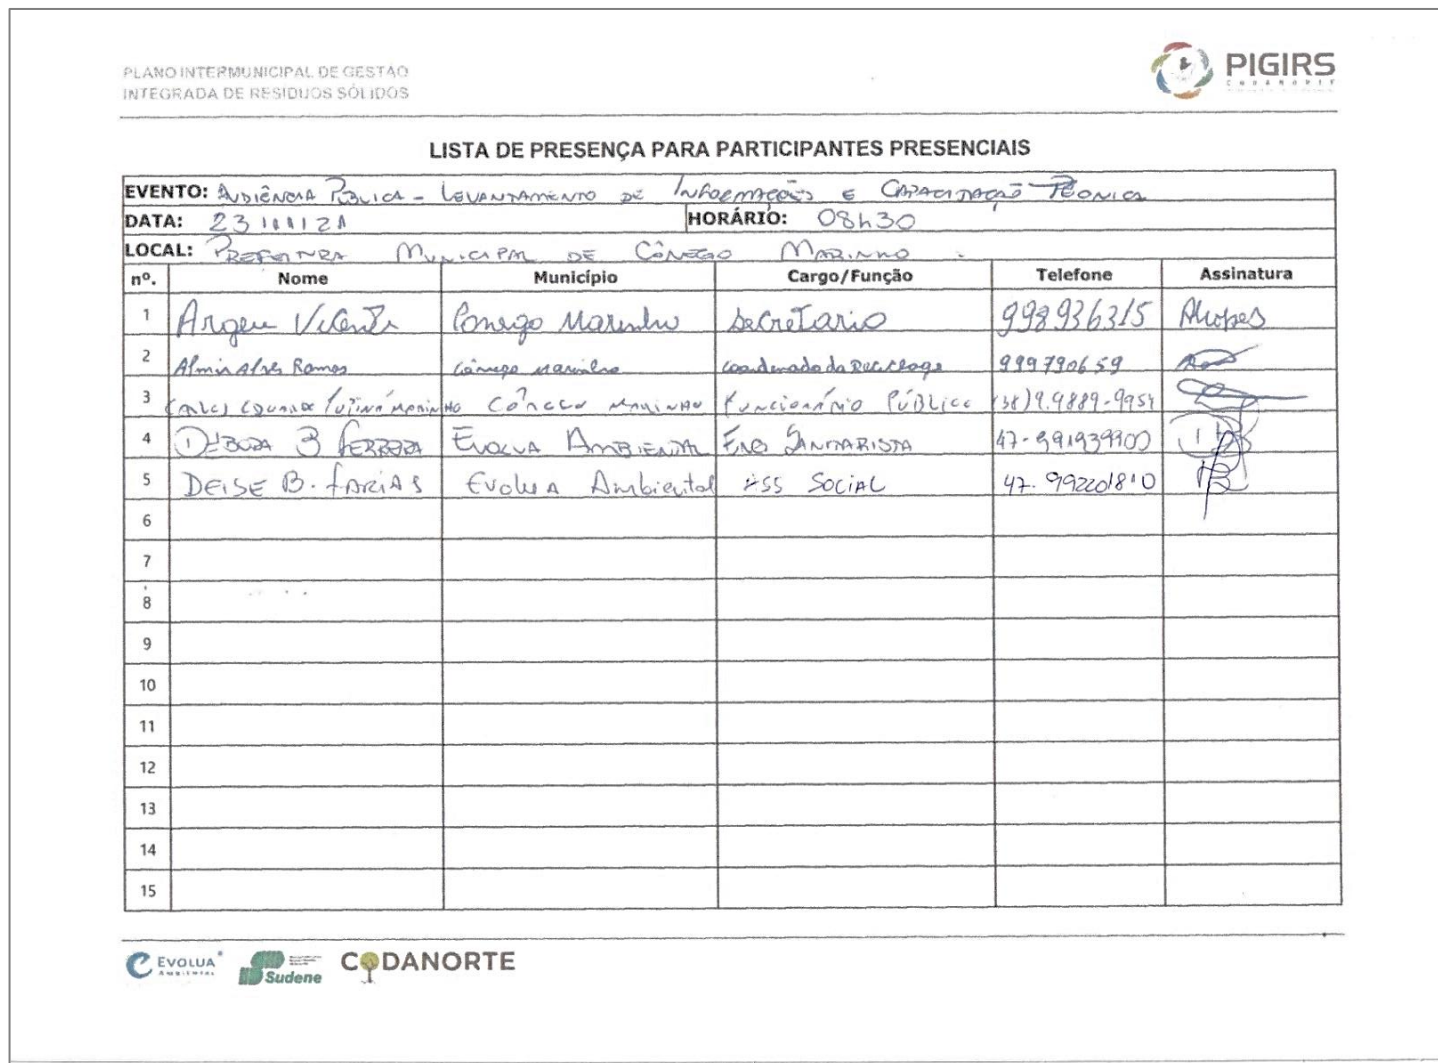 PLANO INTERMUNICIPAL DE GESTÃO
INTEGRADA DE RESÍDUOS SÓLIDOS
PIGIRS
CODANORTE
LISTA DE PRESENÇA PARA PARTICIPANTES PRESENCIAIS
EVENTO: AUDIÊNCIA PÚBLICA - LEVANTAMENTO DE INFORMAÇÕES E CAPACITAÇÃO TÉCNICA
DATA: 23/11/21 HORÁRIO: 08h30
LOCAL: PREFEITURA MUNICIPAL DE CÔNEGO MARINHO.
nº. Nome Município Cargo/Função Telefone Assinatura
1 Argeu Vicente Conego Marinho Secretario 998936315 Alopes
2 Almir Alves Ramos Cônego Marinho Coordenado da Reciclage 999790659
3 CÔNEGO MARINHO FUNCIONÁRIO PÚBLICO (38)9.9889-9954
4 DÉBORA B FERREIRA EVOLUA AMBIENTAL ENG SANITARISTA 47-991939900
5 DEISE B. FARIAS EVOLUA Ambiental ASS SOCIAL 47-992201810
6
7
8
9
10
11
12
13
14
15
EVOLUA AMBIENTAL Sudene CODANORTE